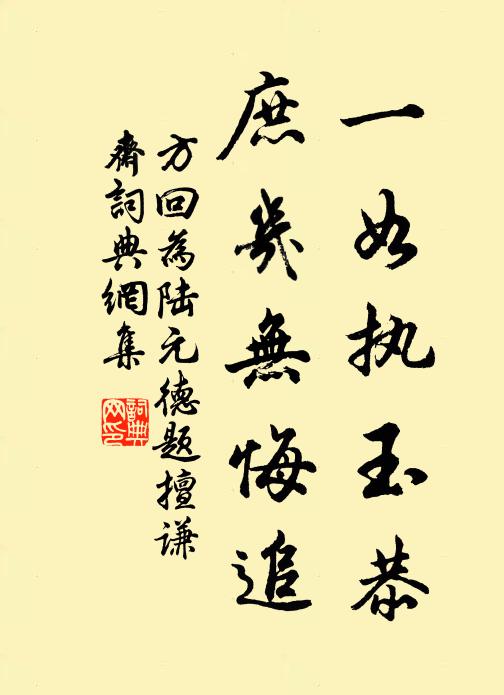 一如执玉恭
庶几無悔追
方回為陆元德题擅谦
齋詞典網集
詞典網印